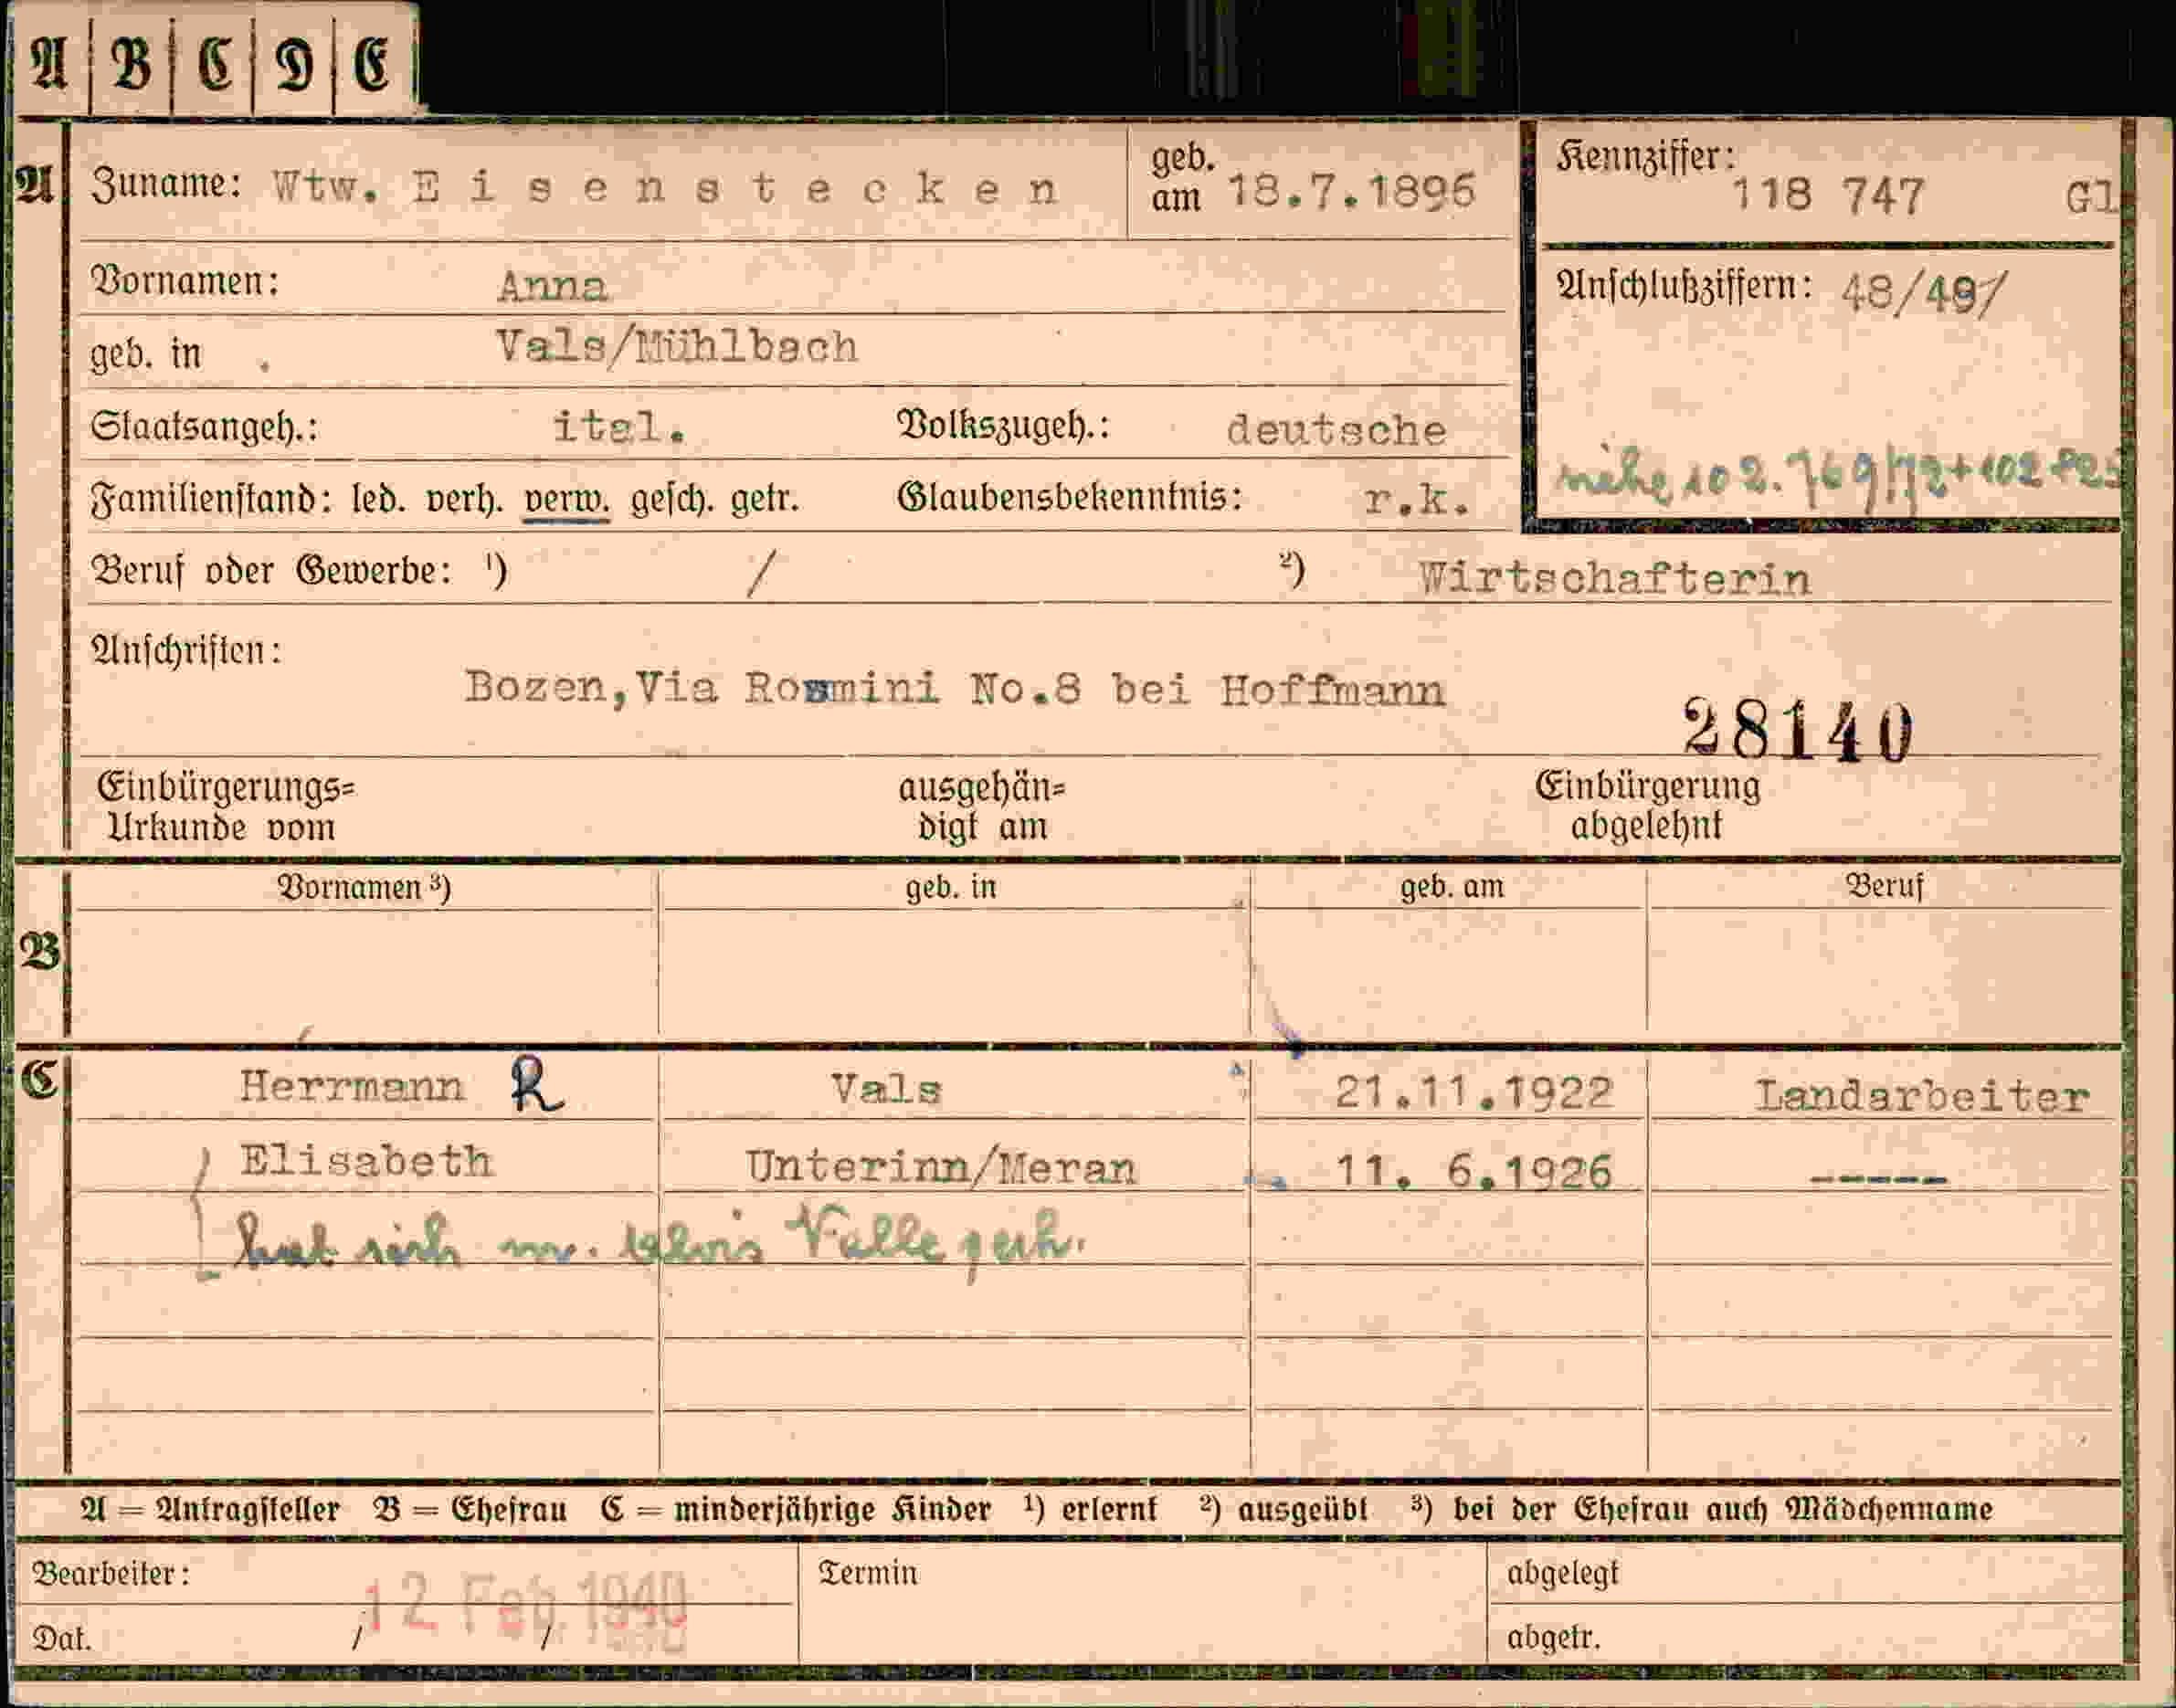 A B C D E
A Zuname: Wtw. E i s e n s t e c k e n geb. am 18.7.1896 Kennziffer: 118 747 Gl
Vornamen: Anna Anschlußziffern: 48/49/
geb. in . Vals/Mühlbach
Staatsangeh.: ital. Volkszugeh.: deutsche
Familienstand: led. verh. verw. gesch. getr. Glaubensbekenntnis: r.k.
Beruf oder Gewerbe: ¹) / ²) Wirtschafterin
Anschriften:
Bozen,Via Rosmini No.8 bei Hoffmann
28140
Einbürgerungs= Urkunde vom ausgehän= digt am Einbürgerung abgelehnt
Vornamen ³) geb. in geb. am Beruf
B
C Herrmann R Vals 21.11.1922 Landarbeiter
Elisabeth Unterinn/Meran 11. 6.1926 -----
hat sich
A = Antragsteller B = Ehefrau C = minderjährige Kinder ¹) erlernt ²) ausgeübt ³) bei der Ehefrau auch Mädchenname
Bearbeiter: Termin abgelegt
12 Feb. 1940
Dat. / / abgetr.